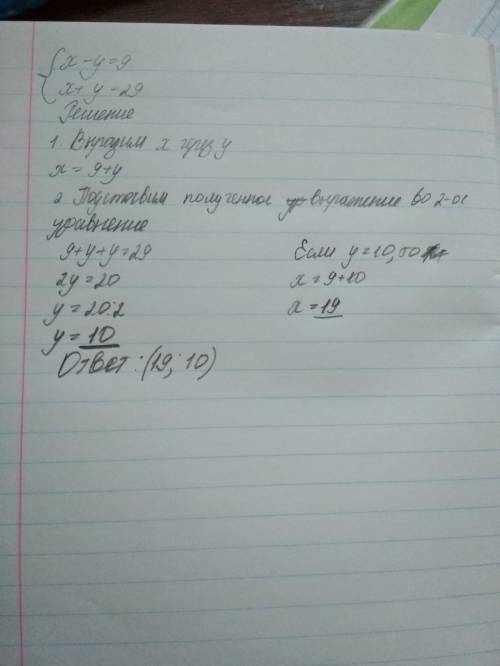 { x - y = 9
x + y = 29
Решение
1. Выразим х через y
x = 9+y
2. Подставим полученное выражение во 2-ое
уравнение
9+y+y=29
2y=20
y = 20:2
y = 10
Если y=10, то
x = 9+10
x = 19
Ответ: (19; 10)